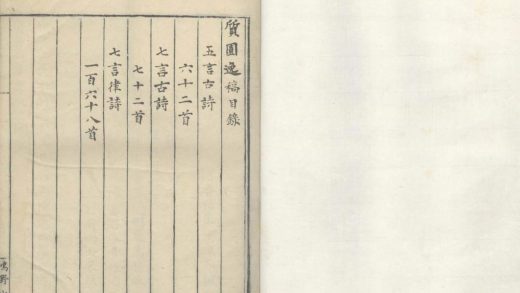 质園逸稿目錄
五言古詩
六十二首
七言古詩
七十二首
七言律詩
一百六十八首
鳴野